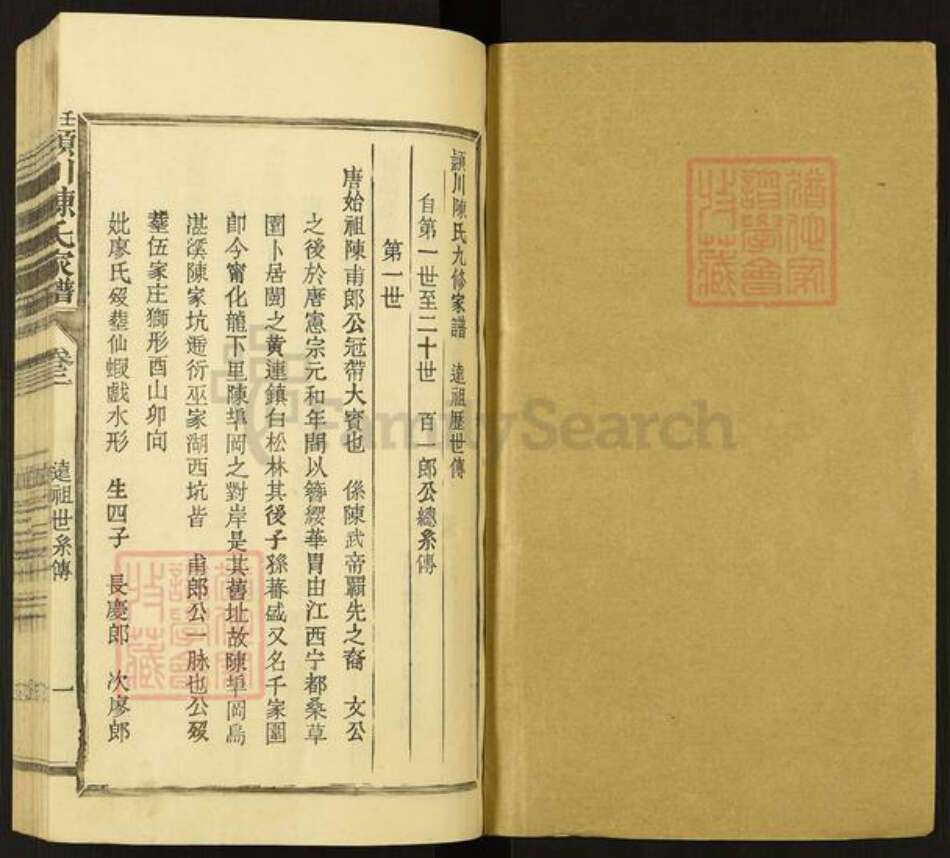 潁川陳氏九修家譜 遠祖歷世傳
自第一世至二十世 百一郎公總系傳
第一世
唐始祖陳甫郎公冠帶大賓也 係陳武帝霸先之裔 文公
之後於唐憲宗元和年間以簪纓華胄由江西宁都桑草
園卜居閩之黄連鎮白松林其後子孫蕃盛又名千家圍
卽今甯化龍下里陳埠岡之對岸是其舊址故陳埠岡烏
湛溪陳家坑遷衍巫家湖西坑皆 甫郎公一脉也公歿
塟伍家庄獅形酉山卯向
妣廖氏歿塟仙蝦戲水形 生四子 長慶郎 次廖郎
壬
潁川陳氏家譜
卷三
遠祖世系傳
一
猶他家譜學會收藏
FamilySearch